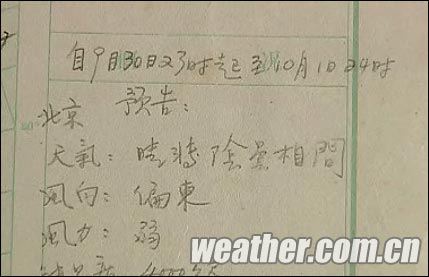 自9月30日23时起至10月1日24时
北京 预告:
天氣: 晴转陰雲相間
風向: 偏東
風力: 弱
4000
weather.com.cn